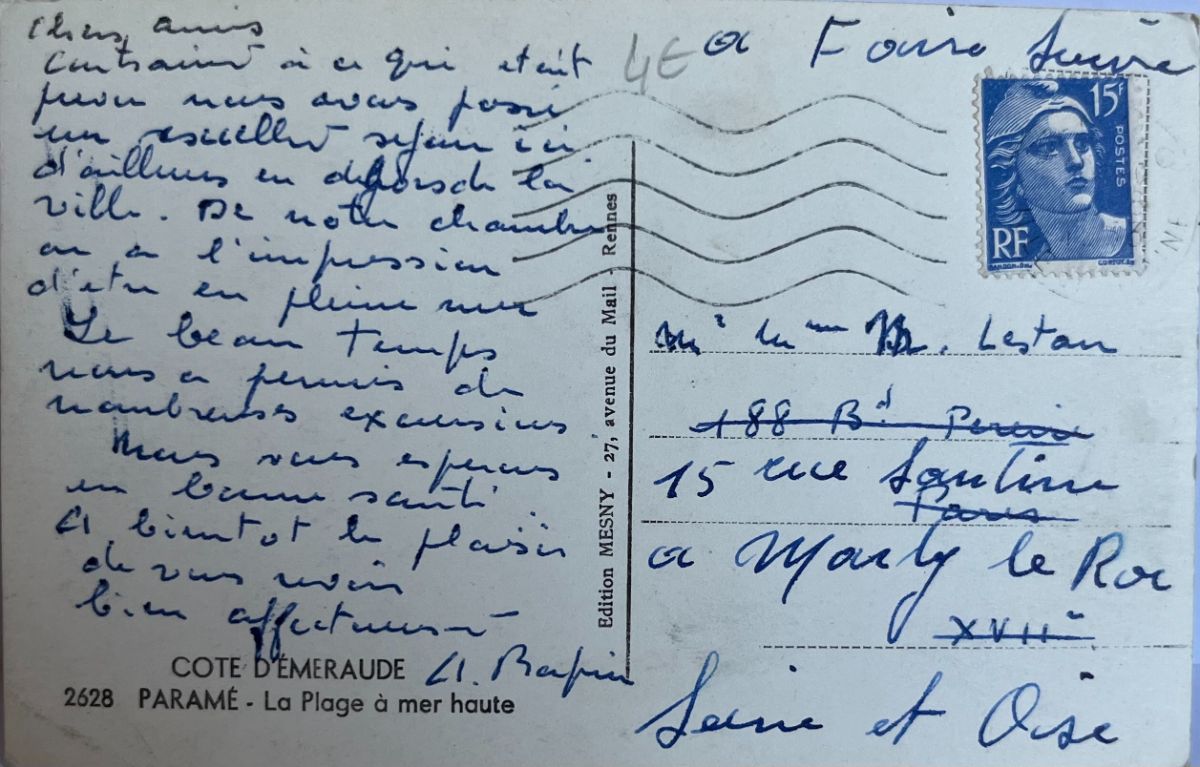 Chers amis
Contrairt à ce qui etait
prevu nous avons passé
un excellent sejour ici
d'ailleurs en dehors de la
ville. De notre chambre
on a l'impression
d'etre en pleine mer
Le beau temps
nous a permis de
nombreuses excursions
Nous vous esperons
en bonne santé
A bientot le plaisir
de vous revoir
bien affectueust
A.
COTE D'ÉMERAUDE
2628 PARAMÉ - La Plage à mer haute
Edition MESNY - 27, avenue du Mail - Rennes
4E
a Faire Suivre
15F
POSTES
RF
Mr Mme Lestan
188 Bd Pereire
15 rue Santine
Paris
a Marly le Roi
XVIIe
Seine et Oise